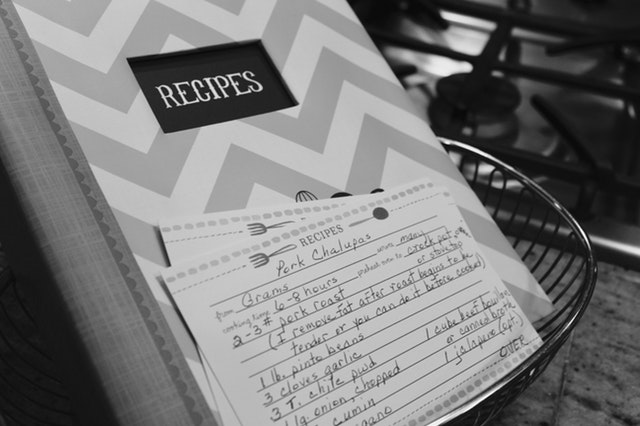 RECIPES
RECIPES
Pork Chalupas
from Grams serves many
cooking time 6-8 hours preheat oven to crock pot or stove top
2-3# pork roast
(I remove fat after roast begins to be
tender or you can do it before cooked)
1 lb. pinto beans
3 cloves garlic 1 cube beef bouillon
3 T. chile pwd or canned broth
1 lg. onion, chopped 1 jalapeno (opt.)
cumin OVER